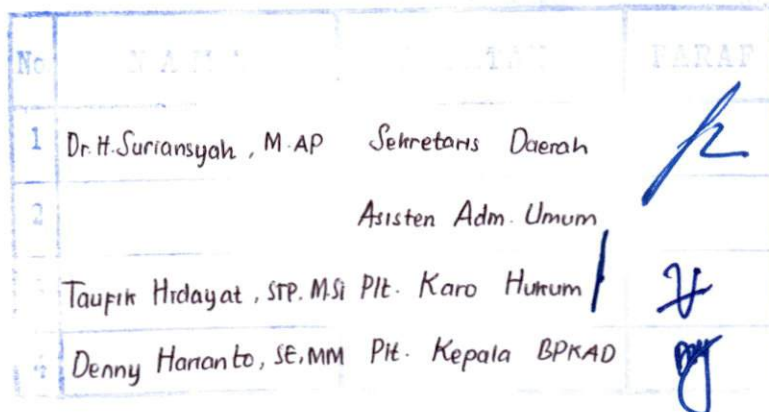 No NAMA JABATAN PARAF
1 Dr. H. Suriansyah, M.AP Sekretaris Daerah
2 Asisten Adm. Umum
3 Taufik Hidayat, STP. M.Si Plt. Karo Hukum
Denny Harianto, SE, MM Plt. Kepala BPKAD